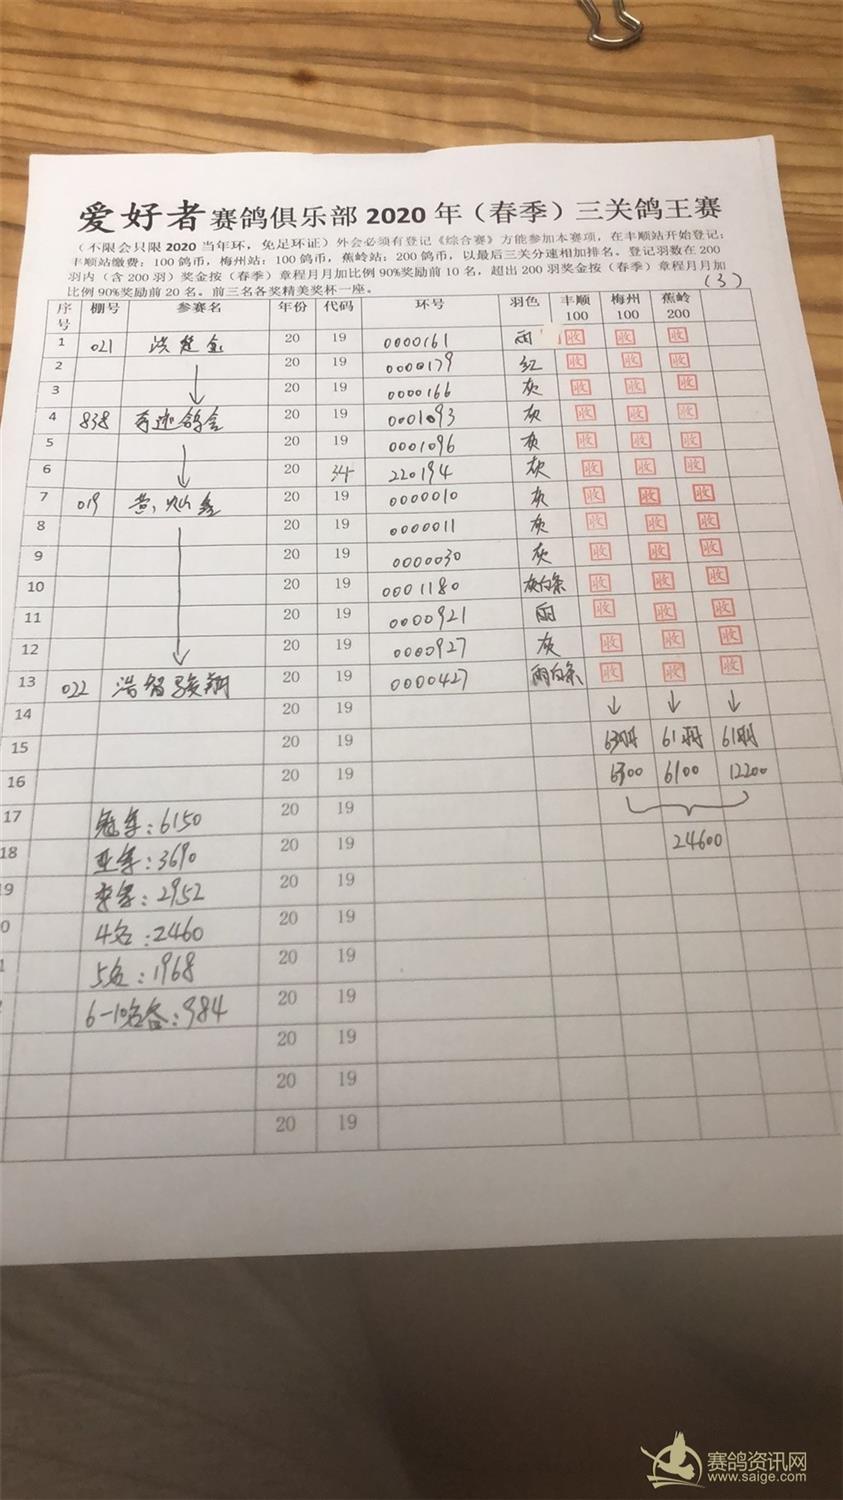 爱好者赛鸽俱乐部2020年(春季)三关鸽王赛
(不限会只限2020当年环,免足环证)外会必须有登记《综合赛》方能参加本赛项,在丰顺站开始登记;
丰顺站缴费:100鸽币,梅州站:100鸽币,蕉岭站:200鸽币,以最后三关分速相加排名。登记羽数在200
羽内(含200羽)奖金按(春季)章程月月加比例90%奖励前10名,超出200羽奖金按(春季)章程月月加
比例90%奖励前20名。前三名各奖精美奖杯一座。
(3)
序号 棚号 参赛名 年份 代码 环号 羽色 丰顺100 梅州100 蕉岭200
1 021 洪楚金 20 19 0000161 雨 收 收 收
2 20 19 0000179 红 收 收 收
3 20 19 0000166 灰 收 收 收
4 838 奇迹鸽舍 20 19 0001093 灰 收 收 收
5 20 19 0001096 灰 收 收 收
6 20 34 220194 灰 收 收 收
7 019 灿鑫 20 19 0000010 灰 收 收 收
8 20 19 0000011 灰 收 收 收
9 20 19 0000030 灰 收 收 收
10 20 19 0001180 灰白条 收 收 收
11 20 19 0000921 雨 收 收 收
12 20 19 0000927 灰 收 收 收
13 022 浩智骏翔 20 19 0000427 雨白条 收 收 收
14 20 19 ↓ ↓ ↓
15 20 19 63羽 61羽 61羽
16 20 19 6300 6100 12200
17 冠军:6150 20 19
18 亚军:3690 20 19 24600
9 季军:2952 20 19
0 4名:2460 20 19
1 5名:1968 20 19
6-10名各:984 20 19
20 19
20 19
20 19
赛鸽资讯网
www.saige.com